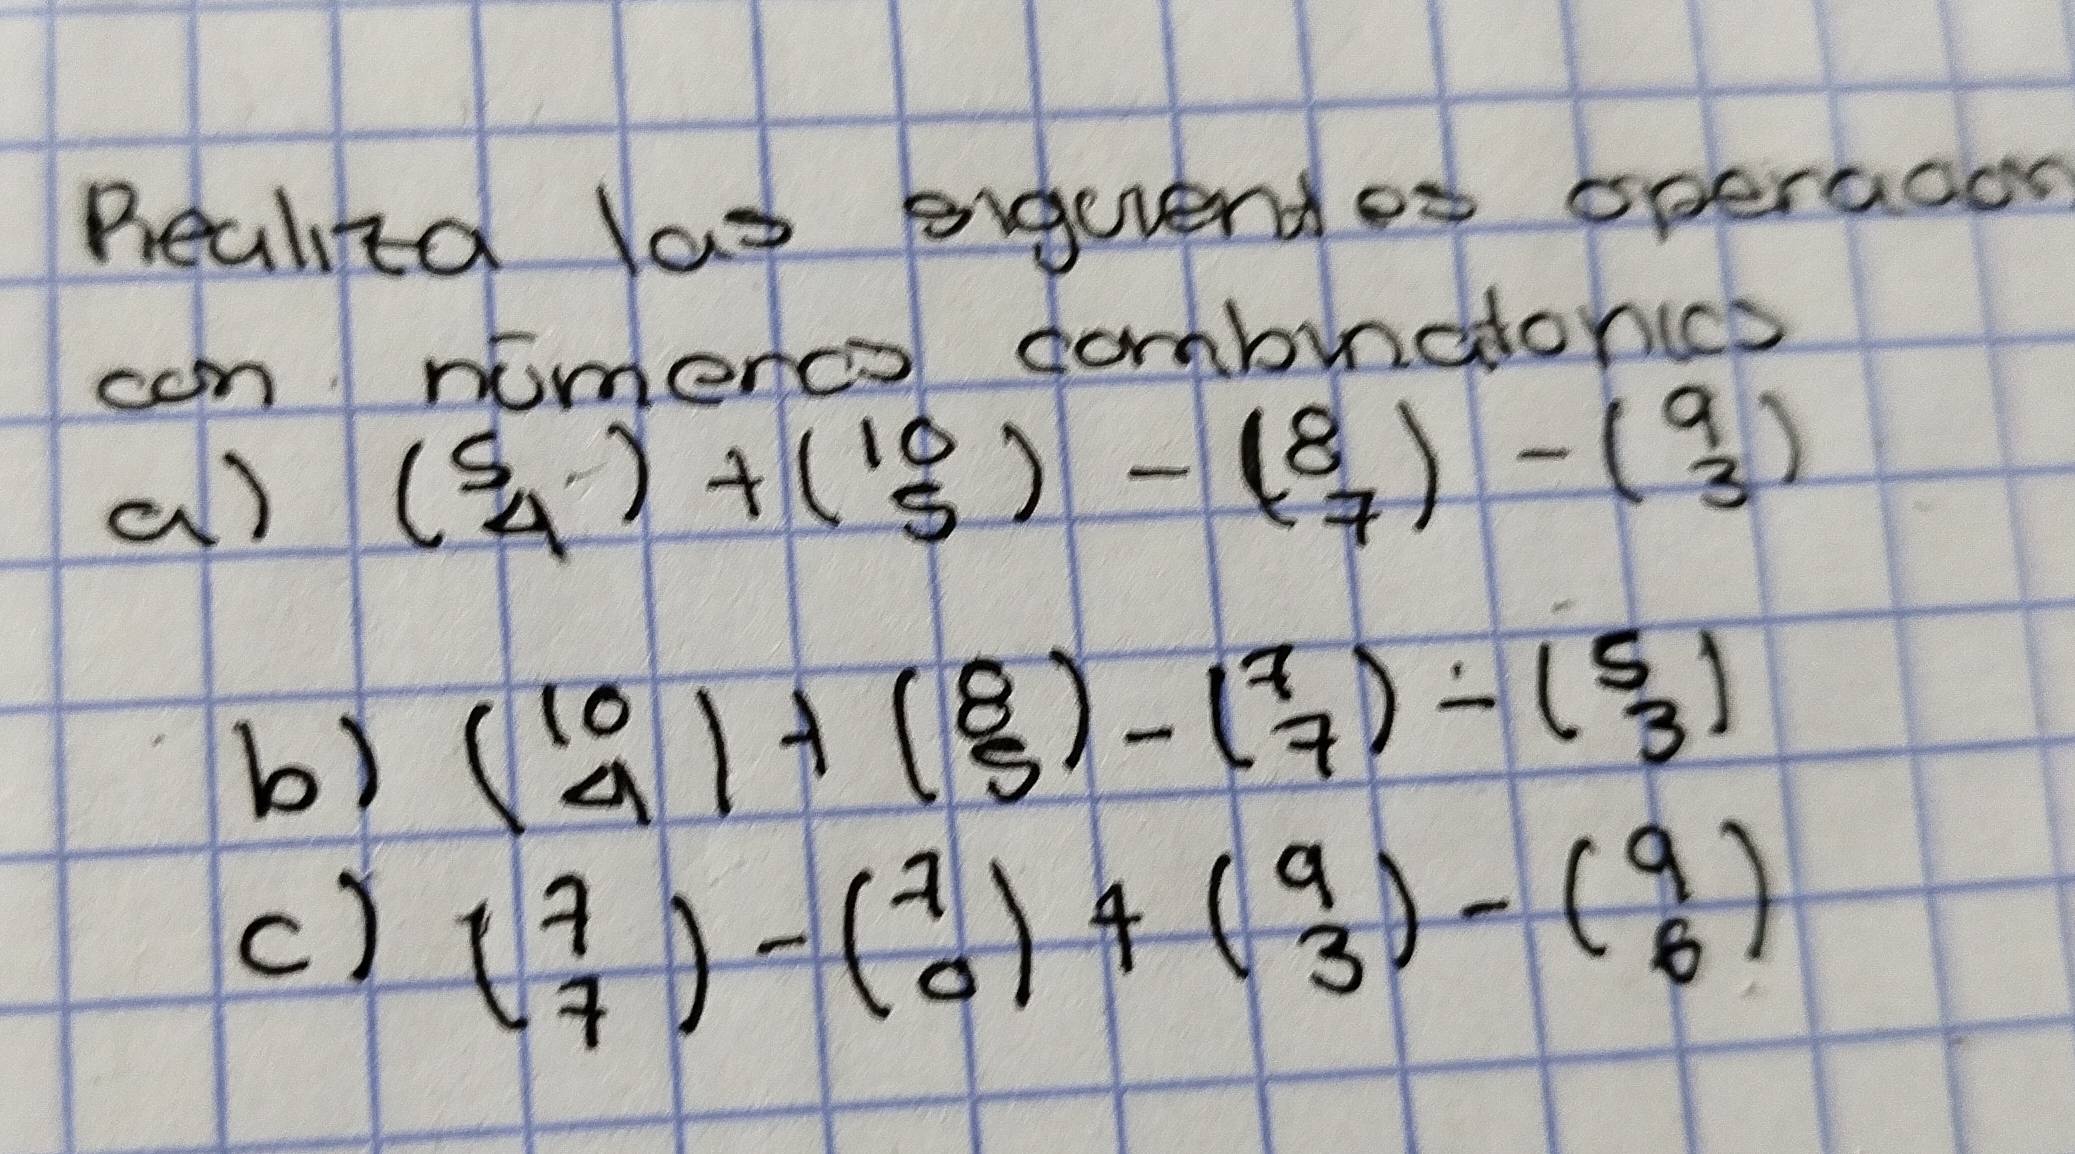 Realiza las siguientes operacion
con números combinatorios
a) (5 4) + (10 5) - (8 7) - (9 3)
b) (10 4) + (8 5) - (7 7) - (5 3)
c) (7 7) - (7 0) + (9 3) - (9 6)